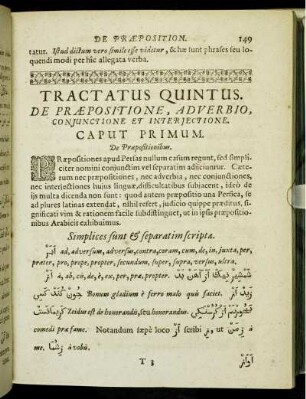 DE PRÆPOSITION. 149
tatus. Istud dictum vero simile esse videtur, & hic sunt phrases seu lo-
quendi modi per hîc allegata verba.
TRACTATUS QUINTUS.
DE PRÆPOSITIONE, ADVERBIO,
CONJUNCTIONE ET INTERJECTIONE.
CAPUT PRIMUM.
De Præpositionibus.
PRæpositiones apud Persas nullum casum regunt, sed simpli-
citer nomini conjunctim vel separatim adjiciuntur. Cæte-
rum nec præpositiones, nec adverbia, nec conjunctiones,
nec interjectiones hujus linguæ, difficultatibus subjacent, ideò de
ijs multa dicenda non sunt: quod autem præpositio una Persica, se-
pè plures latinas extendat, nihil refert, judicio quippe præditus, si-
gnificati vim & rationem facilè subdistinguet, ut in ipsis præpositio-
nibus Arabicis exhibuimus.
Simplices sunt & separatim scripta.
ad, adversum, adversus, contra, coram, cum, de, in, juxta, per,
præter, pro, prope, propter, secundum, super, supra, versus, ultra.
از à, ab, cis, de, è, ex, præ, propter.
Bonum gladium è ferro malo quis faciet.
Zeidus est de honorandis, seu honorandus.
comedi præ fame. Notandum sæpè loco از scribi ز, ut ز من à
me. ز شما à vobis.
T 3 آواز